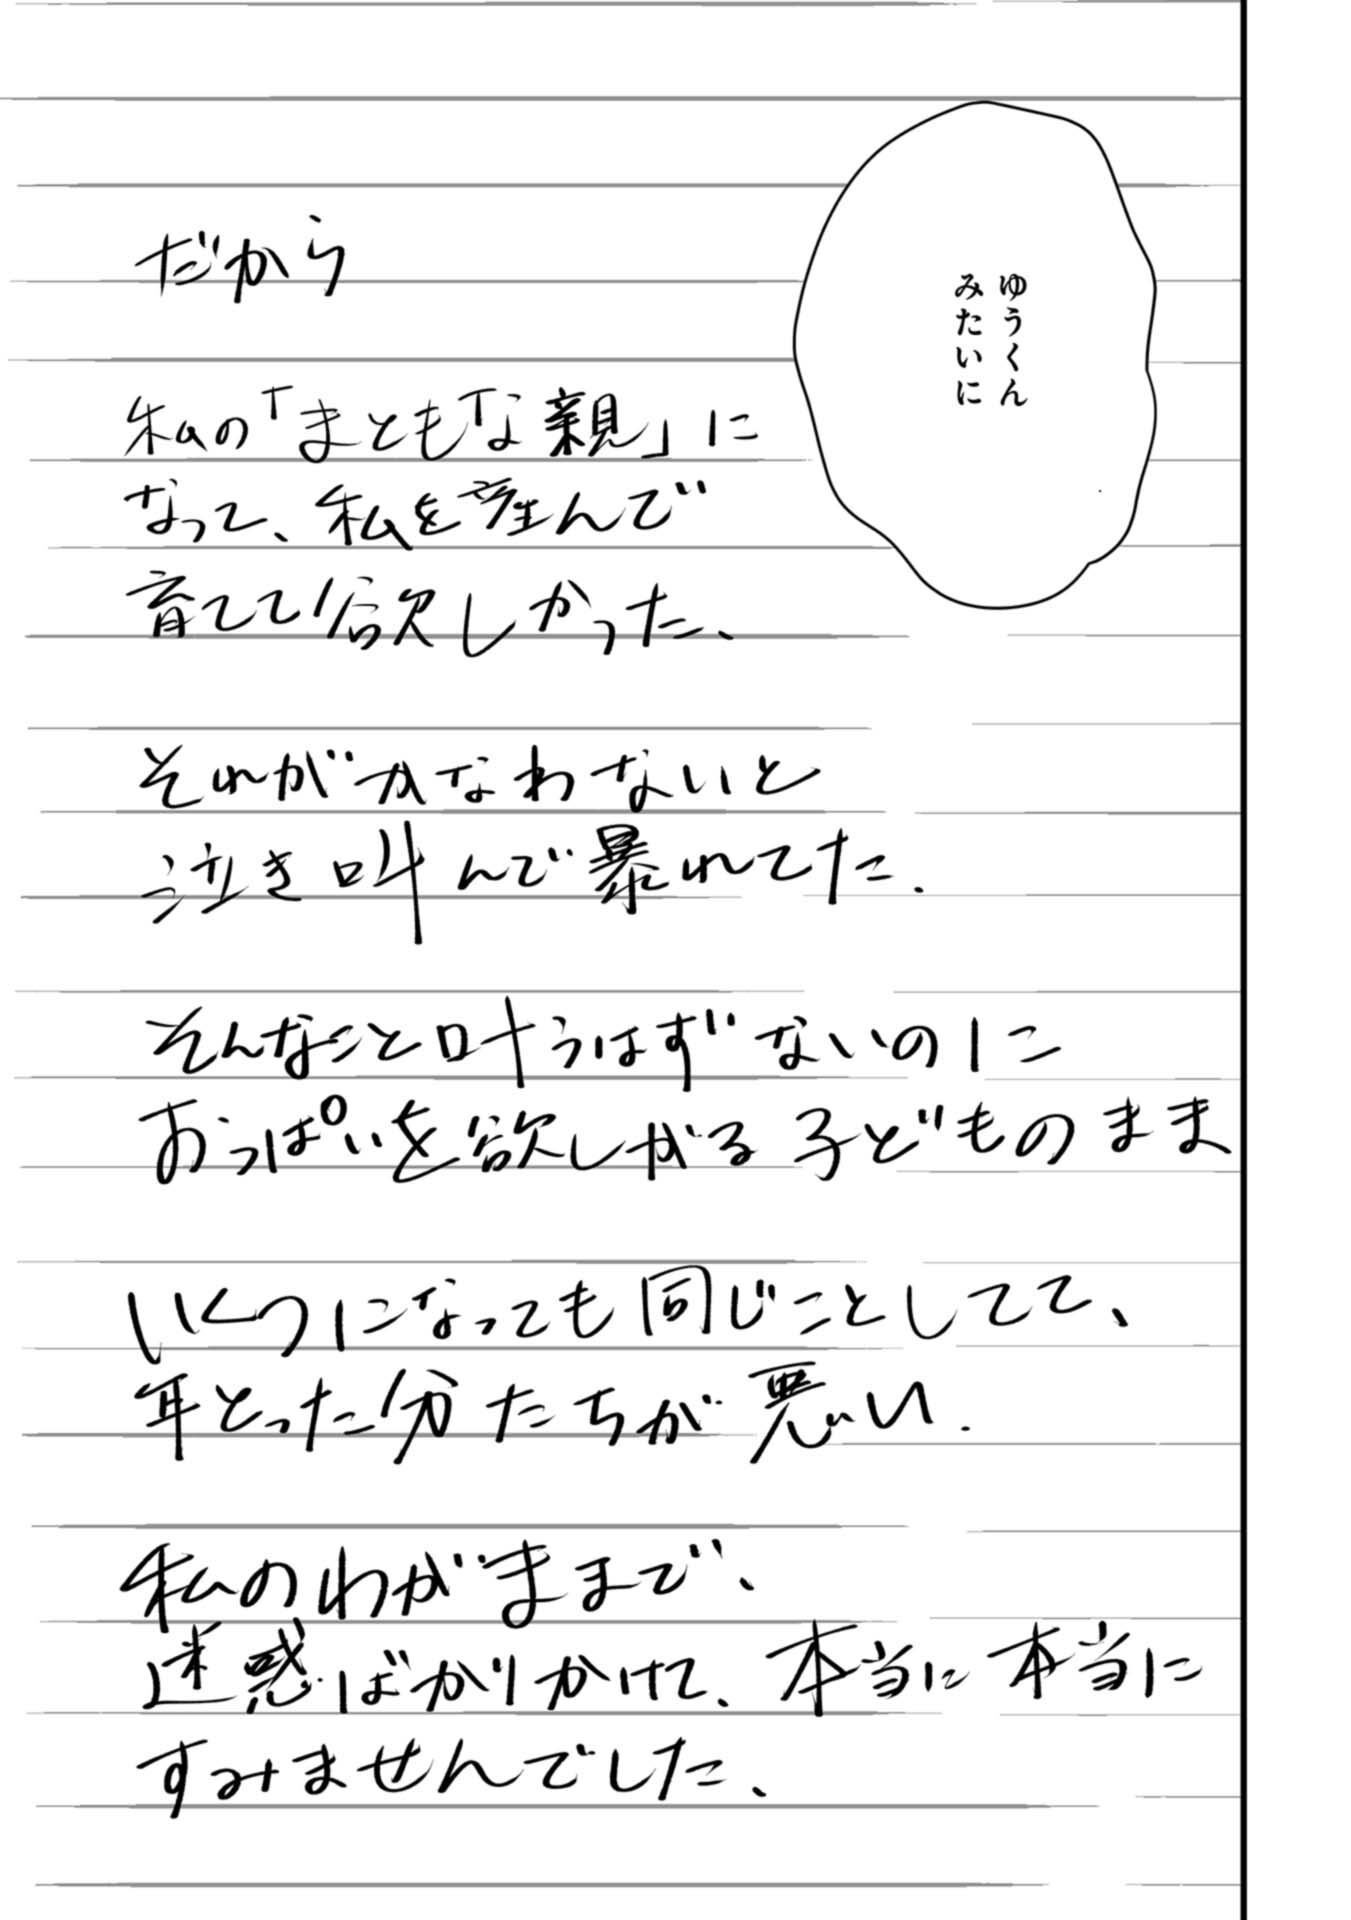 ゆうくん
みたいに
だから
私の「まともな親」に
なって、私を産んで
育てて欲しかった、
それがかなわないと
泣き叫んで暴れてた.
そんなこと叶うはずないのに
おっぱいを欲しがる子どものまま
いくつになっても同じことしてて、
年とった分たちが悪い.
私のわがままで、
迷惑ばかりかけて、本当に本当に
すみませんでした、